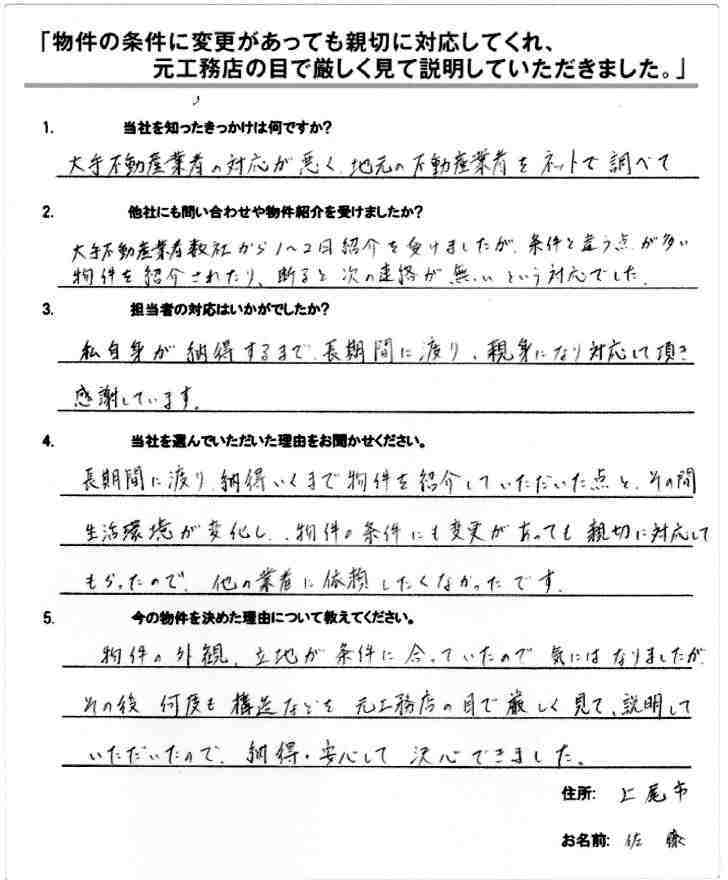 「物件の条件に変更があっても親切に対応してくれ、
元工務店の目で厳しく見て説明していただきました。」
1. 当社を知ったきっかけは何ですか?
大手不動産業者の対応が悪く、地元の不動産業者をネットで調べて
2. 他社にも問い合わせや物件紹介を受けましたか?
大手不動産業者数社から1〜2回紹介を受けましたが、条件と違う点が多い
物件を紹介されたり、断ると次の連絡が無いという対応でした。
3. 担当者の対応はいかがでしたか?
私自身が納得するまで、長期間に渡り、親身になり対応して頂き
感謝しています。
4. 当社を選んでいただいた理由をお聞かせください。
長期間に渡り、納得いくまで物件を紹介していただいた点と、その間
生活環境が変化し、物件の条件にも変更があっても親切に対応して
もらったので、他の業者に依頼したくなかったです。
5. 今の物件を決めた理由について教えてください。
物件の外観、立地が条件に合っていたので気にはなりましたが、
その後何度も構造などを元工務店の目で厳しく見て、説明して
いただいたので、納得・安心して決心できました。
住所: 上尾市
お名前: 佐